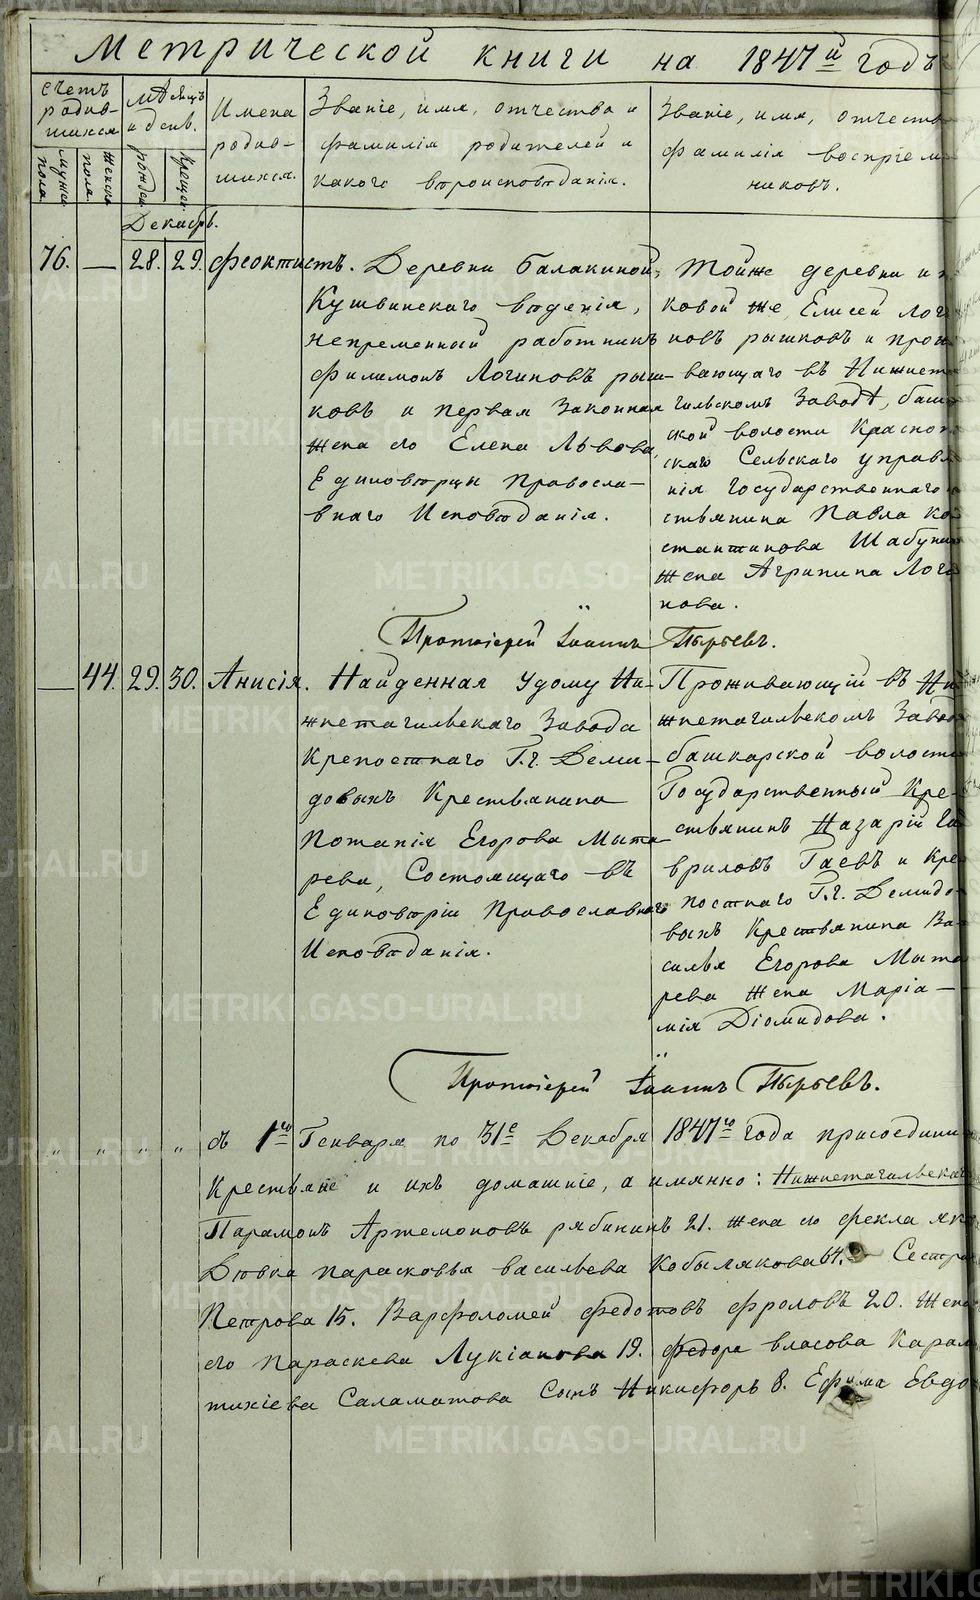 Метрической книги на 1847й годъ
счетъ родив-шихся
Мѣсяцъ и день.
Имена родив-шихся.
Званіе, имя, отчество и
фамилія родителей и
какого вѣроисповѣданія.
Званіе, имя, отчество
фамилія воспріем-
никовъ.
мужес. пола
женск. пола.
рожден.
крещен.
Декабрь.
76. — 28. 29. Феоктистъ.
Деревни Балакиной,
Кушвинскаго вѣденія,
непременный работникъ
Филимонъ Логиновъ Рыш-
ковъ и первая законная
жена его Елена Львова,
Единовѣрцы Правосла-
внаго Исповѣданія.
Тойже деревни и
ковой же Елисей Лог
новъ Рышковъ и прож
вающаго въ Нижнет
гильскомъ Заводѣ, баш
ской волости Красно
скаго Сельскаго управл
нія государственнаго
стьянина Павла Ко
стантинова Шабуни
жена Агрипина Логи
нова.
Протоіерей Іоаннъ Пырьевъ.
— 44. 29. 30. Анисія.
Найденная у дому Ни-
жнетагильскаго Завода
Крепостнаго Г.г. Деми-
довыхъ Крестьянина
Потапія Егорова Мыта-
рева, Состоящаго въ
Единовѣріи Православнаго
Исповѣданія.
Проживающій въ Ни
жнетагильскомъ Завод
башкарской волости
Государственный Кре-
стьянинъ Назарій Га
вриловъ Гаевъ и кре
постнаго Г.г. Демидо
выхъ Крестьянина Ва
силья Егорова Мыта
рева жена Маріа-
мія Діомидова.
Протоіерей Іоаннъ Пырьевъ.
" " " " съ 1го Генваря по 31е Декабря 1847го года присоедини
Крестьяне и ихъ домашніе, а имянно: Нижнетагильскаго
Парамонъ Артемоновъ Рябининъ 21. жена его Фекла як
Дѣвка Парасковья Васильева Кобылякова 64. Сестра
Петрова 15. Варфоломей Федотовъ Фроловъ 20. Жена
его Параскева Лукіанова 19. Федора Власова Карам
тихіева Саламатова Сынъ Никифоръ 8. Ефима Евдо
METRIKI.GASO-URAL.RU